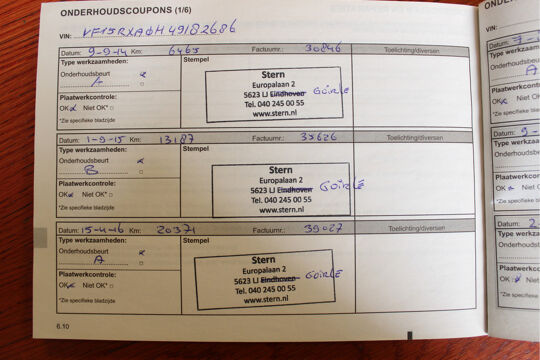 ONDERHOUDSCOUPONS (1/6)
VIN: VF15RXA0H49182686
Datum: 9-9-14 Km: 6465 Factuurnr.: 30846 Toelichting/diversen
Type werkzaamheden: Stempel
Onderhoudsbeurt
A
Plaatwerkcontrole:
OK* Niet OK*
*Zie specifieke bladzijde
Stern
Europalaan 2
5623 LJ Eindhoven GOIRLE
Tel. 040 245 00 55
www.stern.nl
Datum: 1-9-15 Km: 13187 Factuurnr.: 35626 Toelichting/diversen
Type werkzaamheden: Stempel
Onderhoudsbeurt
B
Plaatwerkcontrole:
OK* Niet OK*
*Zie specifieke bladzijde
Stern
Europalaan 2
5623 LJ Eindhoven GOIRLE
Tel. 040 245 00 55
www.stern.nl
Datum: 15-4-16 Km: 20371 Factuurnr.: 39027 Toelichting/diversen
Type werkzaamheden: Stempel
Onderhoudsbeurt
A
Plaatwerkcontrole:
OK* Niet OK*
*Zie specifieke bladzijde
Stern
Europalaan 2
5623 LJ Eindhoven GOIRLE
Tel. 040 245 00 55
www.stern.nl
6.10
ONDERHOUD
VIN:
Datum:
Type werkzaam
Onderhoudsbeu
A
Plaatwerkcontr
OK Niet OK*
*Zie specifieke b
Datum: 9-
Type werkzaa
Onderhoudsb
Plaatwerkcont
OK Niet O
*Zie specifieke
Datum: 2
Type werkza
Onderhoudsb
Plaatwerkco
OK Niet
*Zie specifiek